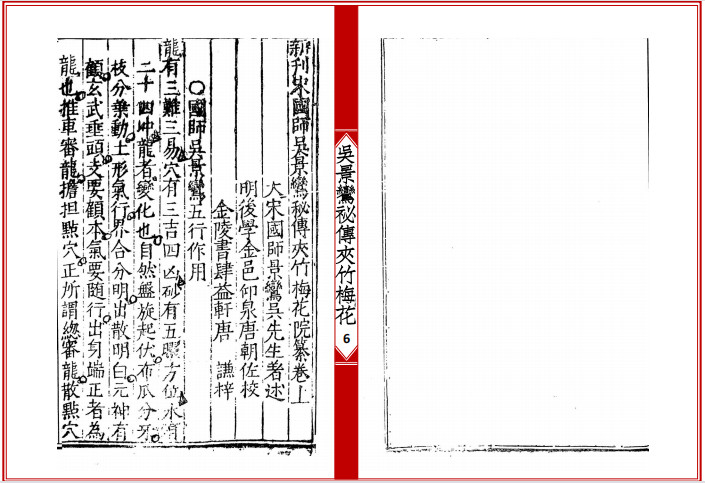 新刊宋國師吳景鸞秘傳夾竹梅花院纂卷上
大宋國師景鸞吳先生著述
明後學金邑仰泉唐朝佐校
金陵書肆益軒唐 謙梓
○國師吳景鸞五行作用
龍有三難三易穴有三吉四凶砂有五
二十四龍者變化也自然盤旋起伏布瓜分牙
枝分乗動土形氣行界合分明出散明白元神有
顧玄武垂頭支要顧本氣要随行出身端正者為
龍也推車審龍擔担點穴正所謂總審龍散點穴
吳景鸞祕傳夾竹梅花
6